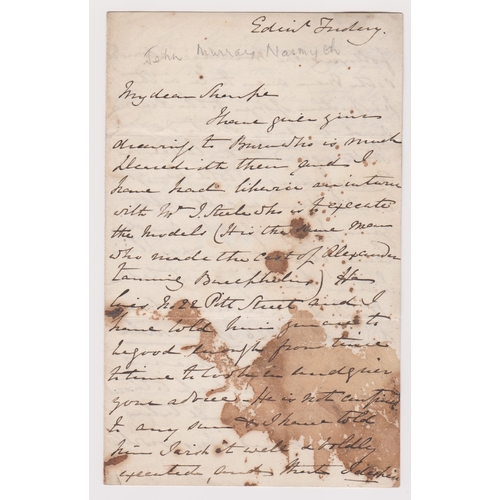 Edinr. Friday.
John Murray Nasmyth
My dear Sharpe
I have given your
drawings to Burn who is much
pleased with them and I
have had likewise an interv
with Mr J. Steele who is to execute
the models (He is the same man
who made the cast of Alexander
taming Bucephalus) He
lives No. 22 Pitt Street and I
have told him you are to
be good enough from time
to time to look in and give
your advice. He is not confined
to any sum & I have told
him I wish it well & boldly
executed, and that